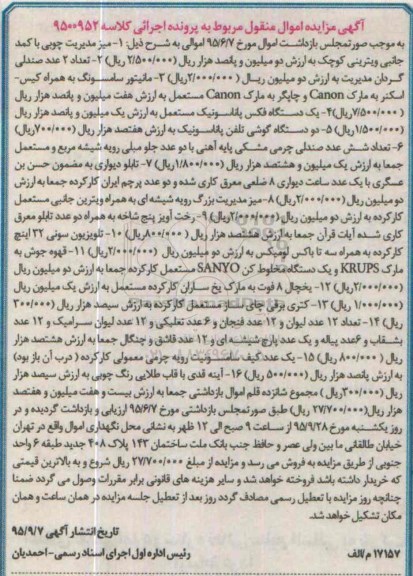 آگهی مزایده اموال منقول مربوط به پرونده اجرائی کلاسه ۹۵۰۰۹۵۲
به موجب صورتمجلس بازداشت اموال مورخ ۹۵/۶/۷ اموالی به شرح ذیل: ۱- میز مدیریت چوبی با کمد
جانبی ویترینی کوچک به ارزش دو میلیون و پانصد هزار ریال (۲/۵۰۰/۰۰۰ ریال) ۲- تعداد ۲ عدد صندلی
گردان مدیریت به ارزش دو میلیون ریال (۲/۰۰۰/۰۰۰ریال) ۳- مانیتور سامسونگ به همراه کیس-
اسکنر به مارک Canon و چاپگر به مارک Canon مستعمل به ارزش هفت میلیون و پانصد هزار ریال
(۷/۵۰۰/۰۰۰ ریال) ۴- یک دستگاه فکس پاناسونیک مستعمل به ارزش یک میلیون و پانصد هزار ریال
(۱/۵۰۰/۰۰۰ ریال) ۵- دو دستگاه گوشی تلفن پاناسونیک به ارزش هفتصد هزار ریال (۷۰۰/۰۰۰ ریال)
۶- تعداد شش عدد صندلی چرمی مشکی پایه آهنی با دو عدد جلو مبلی رویه شیشه مربع و مستعمل
جمعا به ارزش یک میلیون و هشتصد هزار ریال (۱/۸۰۰/۰۰۰ ریال) ۷- تابلو دیواری به مضمون حسن بن
عسگری با یک عدد ساعت دیواری ۸ ضلعی معرق کاری شده و دو عدد پرچم ایران کارکرده جمعا به ارزش
دو میلیون ریال (۲/۰۰۰/۰۰۰ریال) ۸- میز مدیریت بزرگ رویه شیشه ای به همراه ویترین جانبی مستعمل
کارکرده به ارزش دو میلیون ریال (۲/۰۰۰/۰۰۰ریال) ۹- رخت آویز پنج شاخه به همراه دو عدد تابلو معرق
کاری شده آیات قرآن جمعا به ارزش هشتصد هزار ریال (۸۰۰/۰۰۰ ریال) ۱۰- تلویزیون سونی ۳۲ اینچ
کارکرده به همراه سه تا باکس لومیکس به ارزش دو میلیون ریال (۲/۰۰۰/۰۰۰ ریال) ۱۱- قهوه جوش به
مارک KRUPS و یک دستگاه مخلوط کن SANYO مستعمل کارکرده جمعا به ارزش دو میلیون ریال
(۲/۰۰۰/۰۰۰ ریال) ۱۲- یخچال ۸ فوت به مارک یخ ساران کارکرده مستعمل به ارزش یک میلیون ریال
(۱/۰۰۰/۰۰۰ ریال) ۱۳- کتری برقی چای ساز مستعمل کارکرده به ارزش سیصد هزار ریال (۳۰۰/۰۰۰
ریال) ۱۴- تعداد ۱۲ عدد لیوان و ۱۲ عدد فنجان و ۶ عدد نعلبکی و ۱۲ عدد لیوان سرامیک و ۱۲ عدد
بشقاب و ۶ عدد پیاله و یک عدد پارچ شیشه ای و ۱۲ عدد قاشق و چنگال جمعا به ارزش هشتصد هزار
ریال (۸۰۰/۰۰۰ ریال) ۱۵- یک عدد کیف سامسونیت رویه چرمی معمولی کارکرده (درب آن باز بود)
به ارزش پانصد هزار ریال (۵۰۰/۰۰۰ ریال) ۱۶- آینه قدی با قاب طلایی رنگ چوبی به ارزش سیصد هزار
ریال (۳۰۰/۰۰۰ ریال) مجموع شانزده قلم اموال بازداشتی جمعا به ارزش بیست و هفت میلیون و هفتصد
هزار ریال (۲۷/۷۰۰/۰۰۰ ریال) طبق صورتمجلس بازداشتی مورخ ۹۵/۶/۷ ارزیابی و بازداشت گردیده و در
روز یکشنبه مورخ ۹۵/۹/۲۸ از ساعت ۹ صبح الی ۱۲ ظهر به نشانی محل نگهداری اموال واقع در تهران
خیابان طالقانی ما بین ولی عصر و حافظ جنب بانک ملت ساختمان ۱۴۳ پلاک ۴۰۸ جدید طبقه ۶ واحد
جنوبی از طریق مزایده به فروش می رسد و مزایده از مبلغ ۲۷/۷۰۰/۰۰۰ ریال شروع و به بالاترین قیمتی
که خریدار داشته باشد فروخته خواهد شد و سایر هزینه های قانونی برابر مقررات وصول می گردد ضمنا
چنانچه روز مزایده با تعطیل رسمی مصادف گردد روز بعد از تعطیل جلسه مزایده در همان ساعت و همان
مکان تشکیل خواهد شد.
تاریخ انتشار آگهی ۹۵/۹/۷
۱۷۱۵۷ م/الف رئیس اداره اول اجرای اسناد رسمی- احمدیان